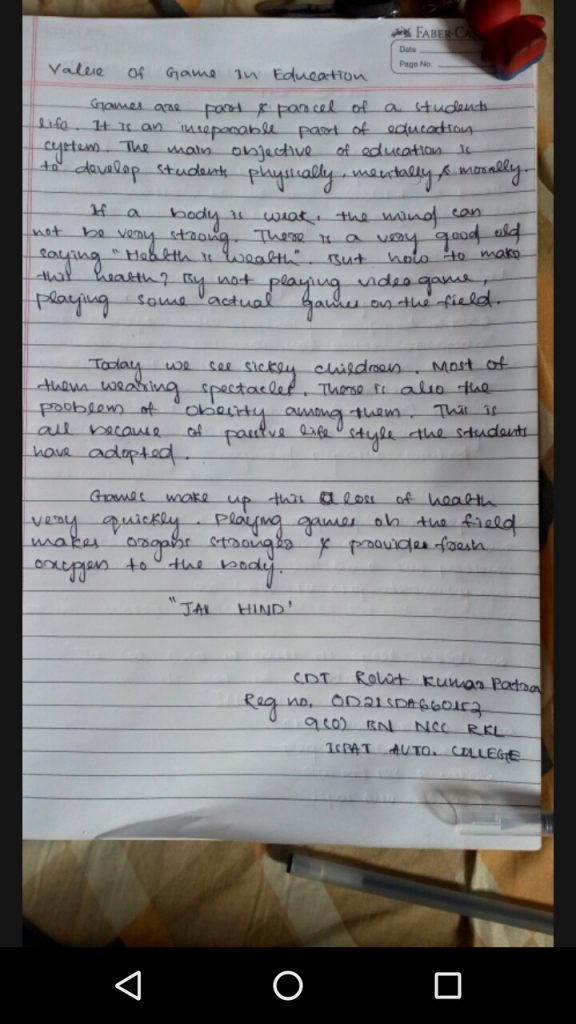 FABER-CA
Date
Page No.
Value Of Game In Education
Games are part & parcel of a students
life. It is an inseparable part of education
system. The main objective of education is
to develop student physically, mentally & morally.
If a body is weak, the mind can
not be very strong. There is a very good old
saying "Health is wealth". But how to make
this health? By not playing video game,
playing some actual games on the field.
Today we see sickly children. Most of
them wearing spectacles. There is also the
problem of obesity among them. This is
all because of passive life style the students
have adopted.
Games make up this loss of health
very quickly. Playing games on the field
makes organs stronger & provides fresh
oxygen to the body.
"JAI HIND'
CDT Rohit Kumar Patra
Reg no. OD21SDA660152
9(O) BN NCC RKL
ISPAT AUTO. COLLEGE